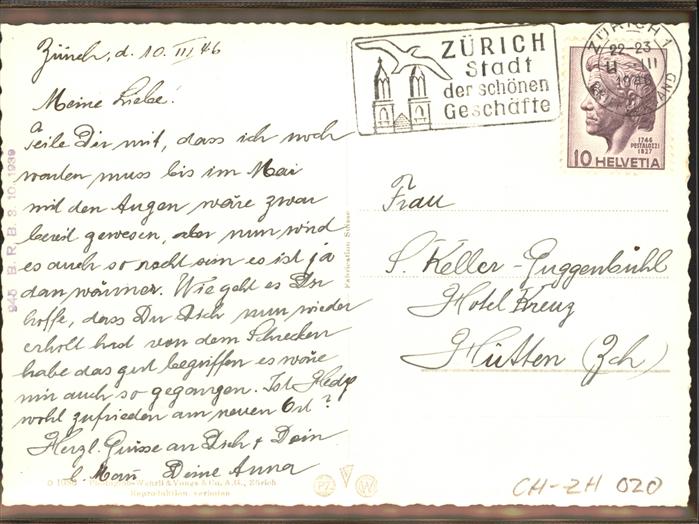 Zürich, d. 10. III 46
Meine Liebe!
Teile Dir mit, dass ich noch
warten muss bis im Mai
mit den Augen wäre zwar
bereit gewesen, aber nun wird
es auch so recht sein es ist ja
dan wärmer. Wie geht es Dir
hoffe, dass Du Dich nun wieder
erholt hast von dem Schrecken
habe das gut begriffen es wäre
mir auch so gegangen. Ist Hedy
wohl zufrieden am neuen Ort?
Herzl. Grüsse an Dich & Dein
l. Mann Deine Anna
ZÜRICH
Stadt
der schönen
Geschäfte
ZÜRICH 1
22-23
11 III
1946
1746
PESTALOZZI
1827
10 HELVETIA
Frau
S. Keller-Guggenbühl
Hotel Kreuz
Hütten (Zch)
945 B.R.B. 3.10.1939
Fabrication Suisse
Wehrli & Vouga & Co. A.G., Zürich
Reproduktion verboten
PZ
V
W
CH-ZH 020